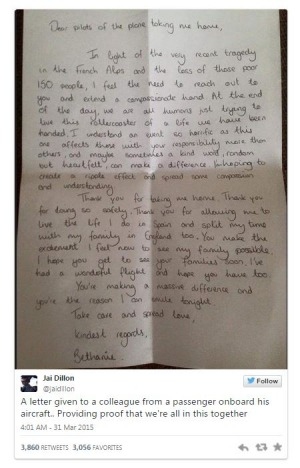 Dear pilots of the plane taking me home,
In light of the very recent tragedy
in the French Alps and the loss of those poor
150 people, I feel the need to reach out to
you and extend a compassionate hand. At the end
of the day we are all humans just trying to
live this rollercoaster of a life we have been
handed. I understand an event so horrific as this
one affects those with your responsibility more than
others, and maybe sometimes a kind word, random
but heartfelt, can make a difference. I'm hoping to
create a ripple effect and spread some compassion
and understanding.
Thank you for taking me home. Thank you
for doing so safely. Thank you for allowing me to
live the life I do in Spain and split my time
with my family in England too. You make the
excitement I feel now to see my family possible.
I hope you get to see your families soon. I've
had a wonderful flight and hope you have too.
You're making a massive difference and
you're the reason I can smile tonight.
Take care and spread love,
Kindest regards,
Bethanie.
Jai Dillon
@jaidillon
Follow
A letter given to a colleague from a passenger onboard his
aircraft.. Providing proof that we're all in this together
4:01 AM - 31 Mar 2015
3,860 RETWEETS 3,056 FAVORITES